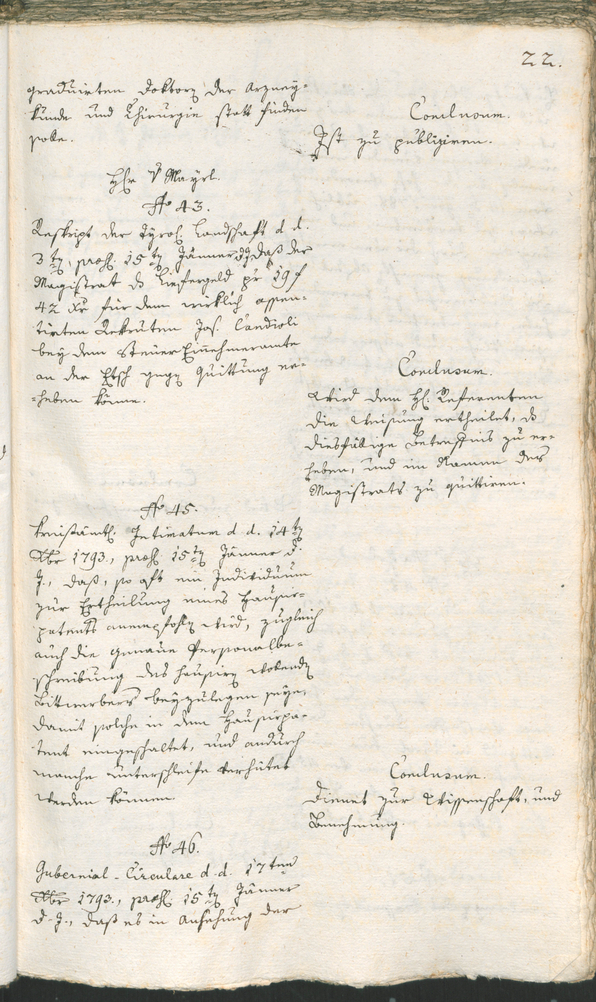 22.
graduirten Doktorn der Arzney-
kunde und Chirurgie statt finden
solle.
Conclusum.
Ist zu publiziren.
Hr. v Mayrl.
No 43.
Reskript der Tyrol. Landschaft d. d.
3ten, præs. 15ten Jänner d. J., daß der
Magistrat das Liefergeld pr 19 f
42 xr für dem wirklich assen-
tirten Rekruten Jos. Candioli
bey dem Steuer Einnehmeramte
an der Etsch gegen Quittung er-
heben könne.
Conclusum.
Wird dem H. Referenten
die Weisung ertheilet, das
diesfällige Betreffnis zu er-
heben, und im Namen des
Magistrats zu quittiren.
No 45.
Kreisämtl. Intimatum d. d. 14ten
Xbr 1793., præs. 15ten Jänner d.
J., daß, so oft ein Individuum
zur Ertheilung eines Hausir-
patents anempfohlen wird, zugleich
auch die genaue Personalbe-
schreibung des hausiren wollenden
Bittwerbers beyzulegen seye,
damit solche in dem Hausirpa-
tent eingeschaltet, und andurch
manche Unterschleife verhütet
werden können.
Conclusum.
Dienet zur Wissenschaft, und
Benehmung.
No 46.
Gubernial-Circulare d. d. 17ten
Xbr 1793., præs. 15ten Jänner
d. J., daß es in Ansehung der